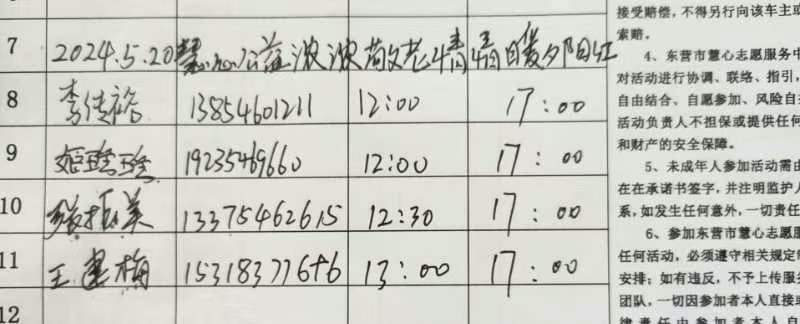 7 2024.5.20慧心公益浓浓敬老情 情暖夕阳红
8 李传裕 13854601211 12:00 17:00
9 姬玲玲 19235469660 12:00 17:00
10 张振美 13375462615 12:30 17:00
11 王建梅 15318377646 13:00 17:00
12
接受赔偿，不得另行向该车主或
索赔。
4、东营市慧心志愿服务中
对活动进行协调、联络、指引，
自由结合、自愿参加、风险自
活动负责人不担保或提供任何
和财产的安全保障。
5、未成年人参加活动需由
在在承诺书签字，并注明监护人
系，如发生任何意外，一切责任
6、参加东营市慧心志愿服
任何活动，必须遵守相关规定
安排；如有违反，不予上传服
团队，一切因参加者本人直接或
律责任由参加者本人自